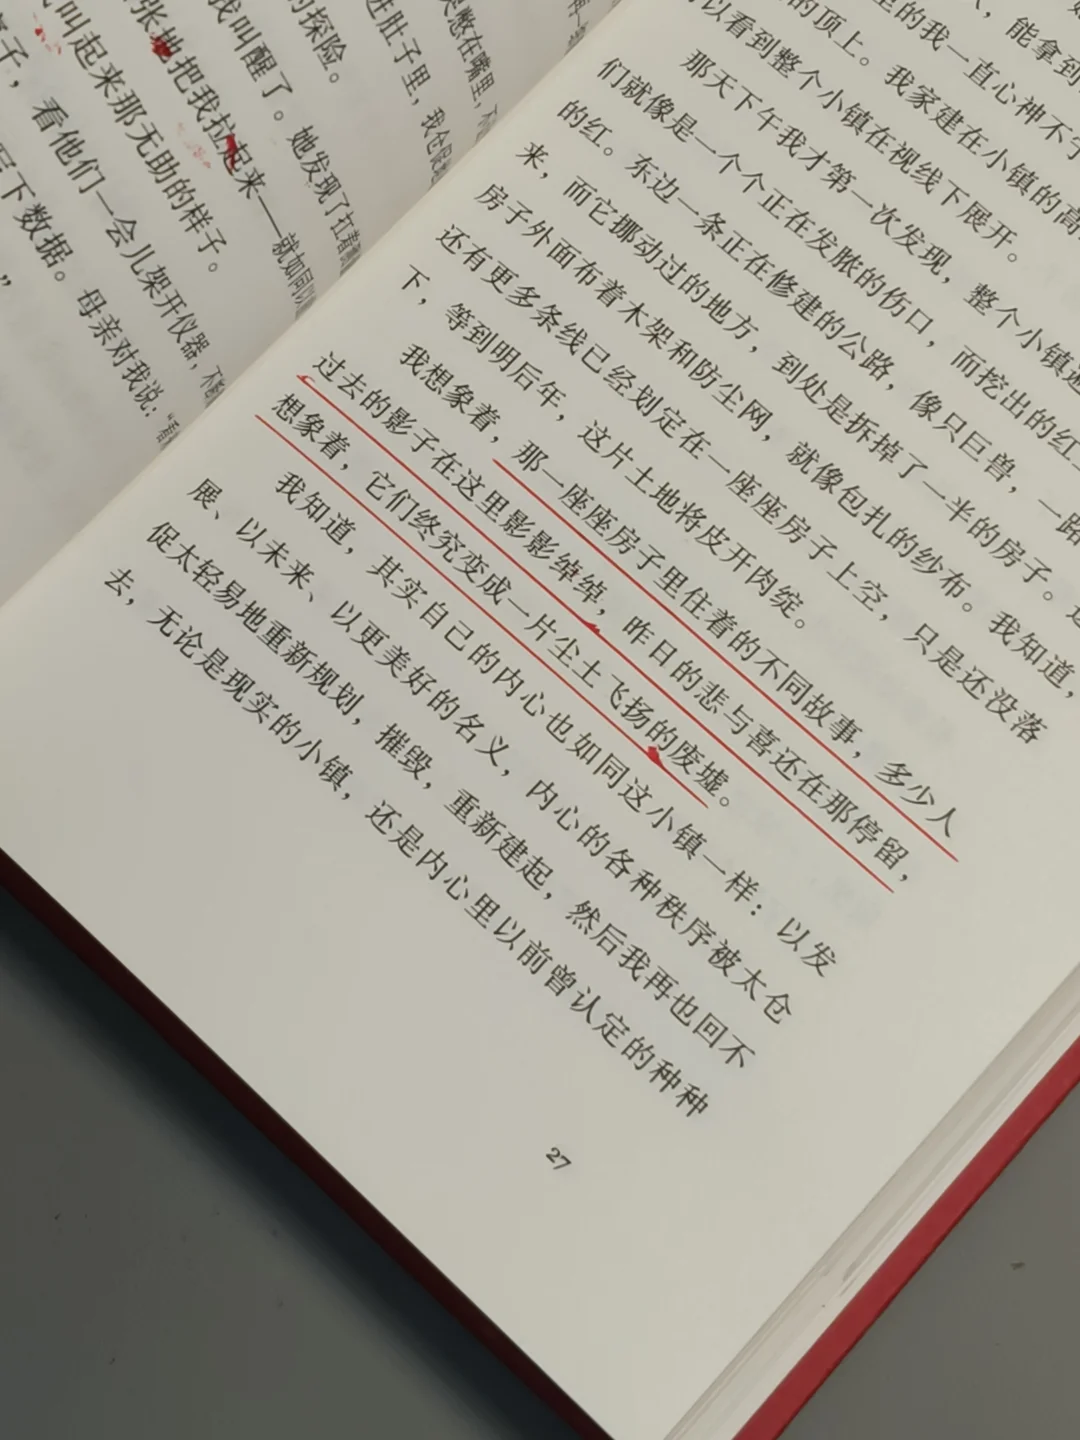 哭憋在嘴里，不
进肚子里，我仓
的探险。
我叫醒了。她发现了扛着
张地把我拉起来——就如同以
我叫起来那无助的样子。
子，看他们一会儿架开仪器，不
写下数据。母亲对我说：“看
”
，能拿到
里的我一直心神不宁
的顶上。我家建在小镇的高
以看到整个小镇在视线下展开。
那天下午我才第一次发现，整个小镇
们就像是一个个正在发脓的伤口，而挖出的红
的红。东边一条正在修建的公路，像只巨兽，一路
来，而它挪动过的地方，到处是拆掉了一半的房子。
房子外面布着木架和防尘网，就像包扎的纱布。我知道，
还有更多条线已经划定在一座座房子上空，只是还没落
下，等到明后年，这片土地将皮开肉绽。
我想象着，那一座座房子里住着的不同故事，多少人
过去的影子在这里影影绰绰，昨日的悲与喜还在那停留，
想象着，它们终究变成一片尘土飞扬的废墟。
我知道，其实自己的内心也如同这小镇一样：以发
展、以未来、以更美好的名义，内心的各种秩序被太仓
促太轻易地重新规划，摧毁，重新建起，然后我再也回不
去，无论是现实的小镇，还是内心里以前曾认定的种种
27